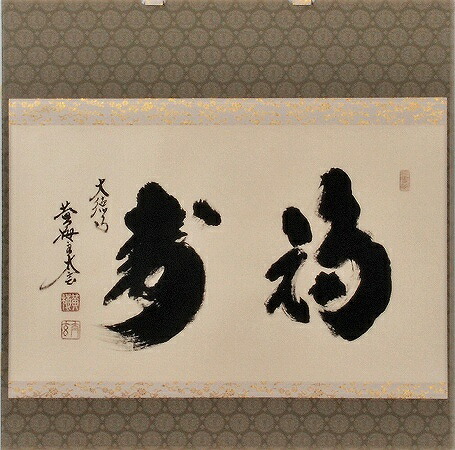 福寿
大徳寺
黄梅主太玄